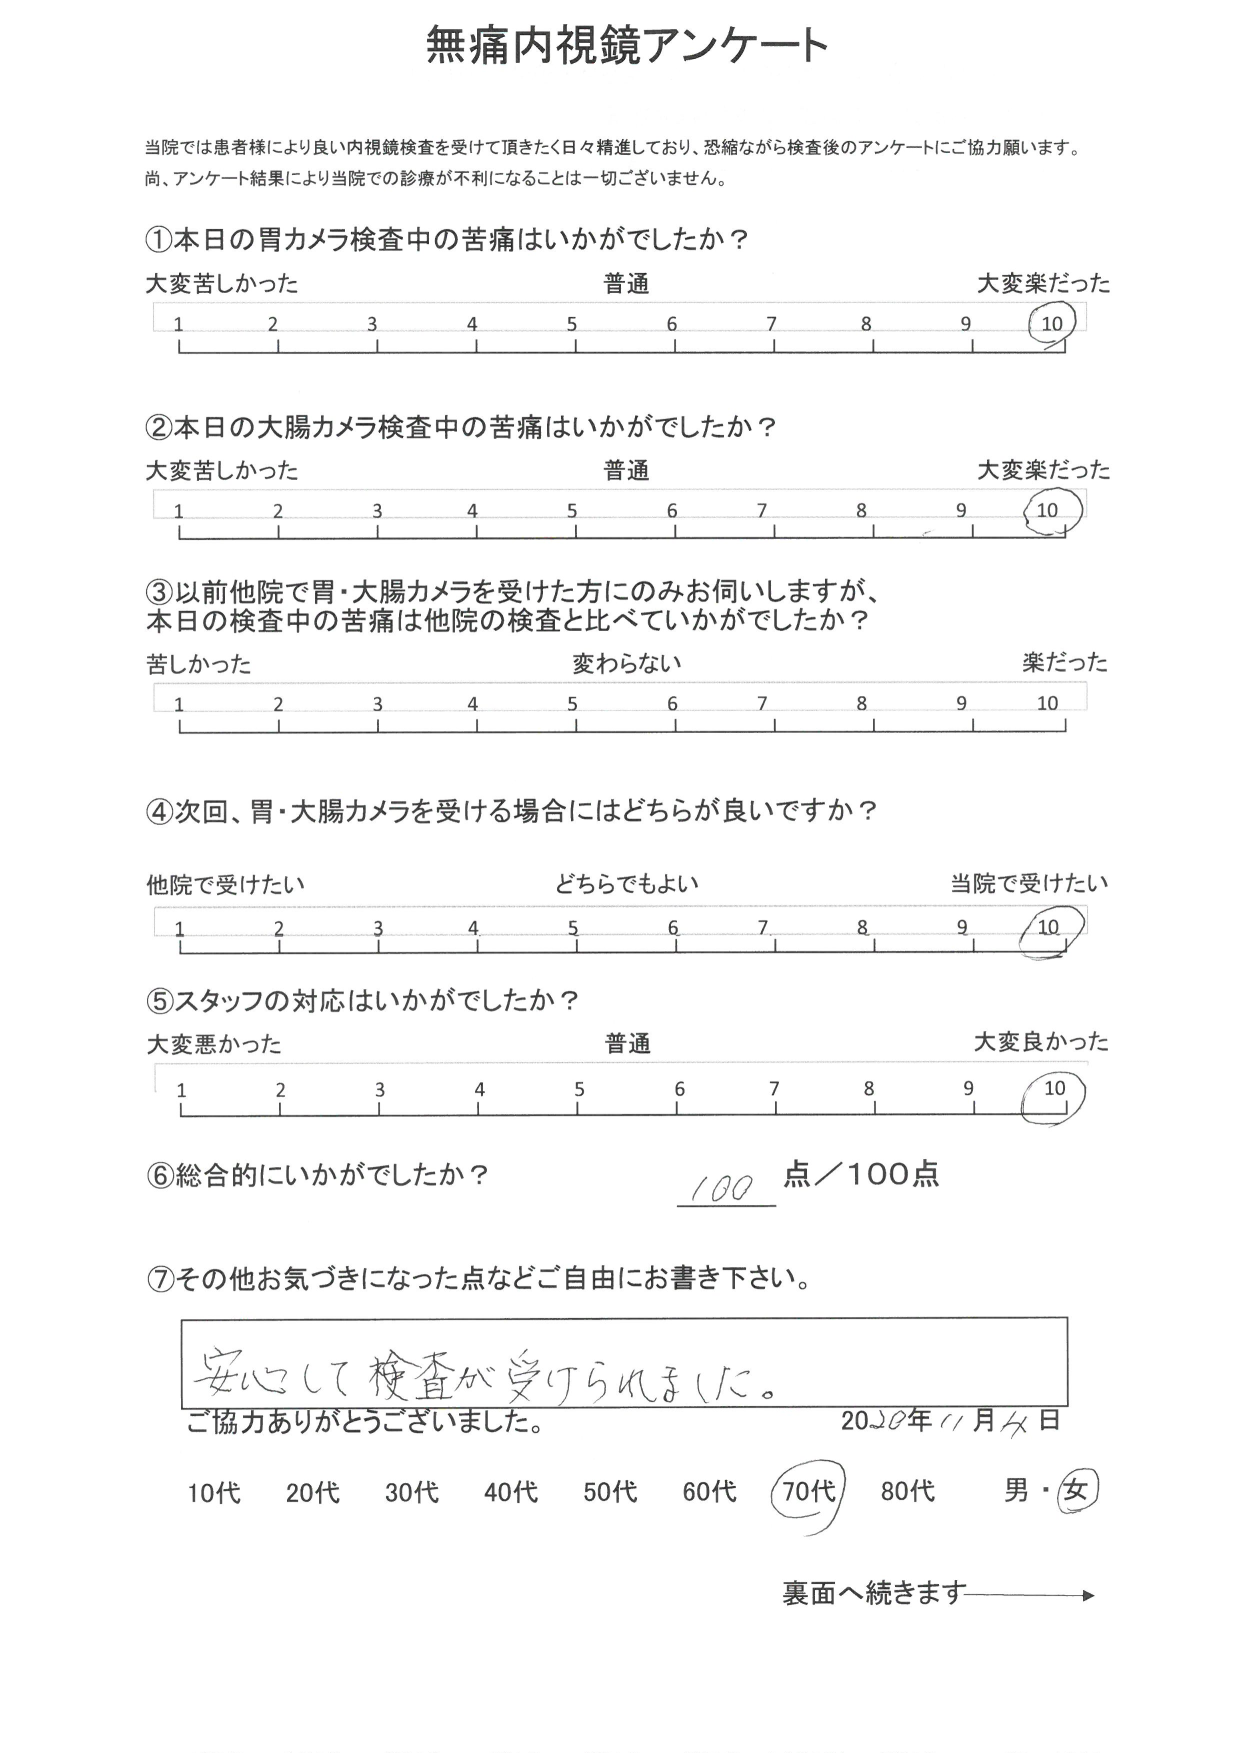 無痛内視鏡アンケート
当院では患者様により良い内視鏡検査を受けて頂きたく日々精進しており、恐縮ながら検査後のアンケートにご協力願います。
尚、アンケート結果により当院での診療が不利になることは一切ございません。
①本日の胃カメラ検査中の苦痛はいかがでしたか？
大変苦しかった 普通 大変楽だった
1 2 3 4 5 6 7 8 9 10
②本日の大腸カメラ検査中の苦痛はいかがでしたか？
大変苦しかった 普通 大変楽だった
1 2 3 4 5 6 7 8 9 10
③以前他院で胃・大腸カメラを受けた方にのみお伺いしますが、
本日の検査中の苦痛は他院の検査と比べていかがでしたか？
苦しかった 変わらない 楽だった
1 2 3 4 5 6 7 8 9 10
④次回、胃・大腸カメラを受ける場合にはどちらが良いですか？
他院で受けたい どちらでもよい 当院で受けたい
1 2 3 4 5 6 7 8 9 10
⑤スタッフの対応はいかがでしたか？
大変悪かった 普通 大変良かった
1 2 3 4 5 6 7 8 9 10
⑥総合的にいかがでしたか？ 100 点／100点
⑦その他お気づきになった点などご自由にお書き下さい。
安心して検査が受けられました。
ご協力ありがとうございました。 2020年11月4日
10代 20代 30代 40代 50代 60代 70代 80代 男・女
裏面へ続きます